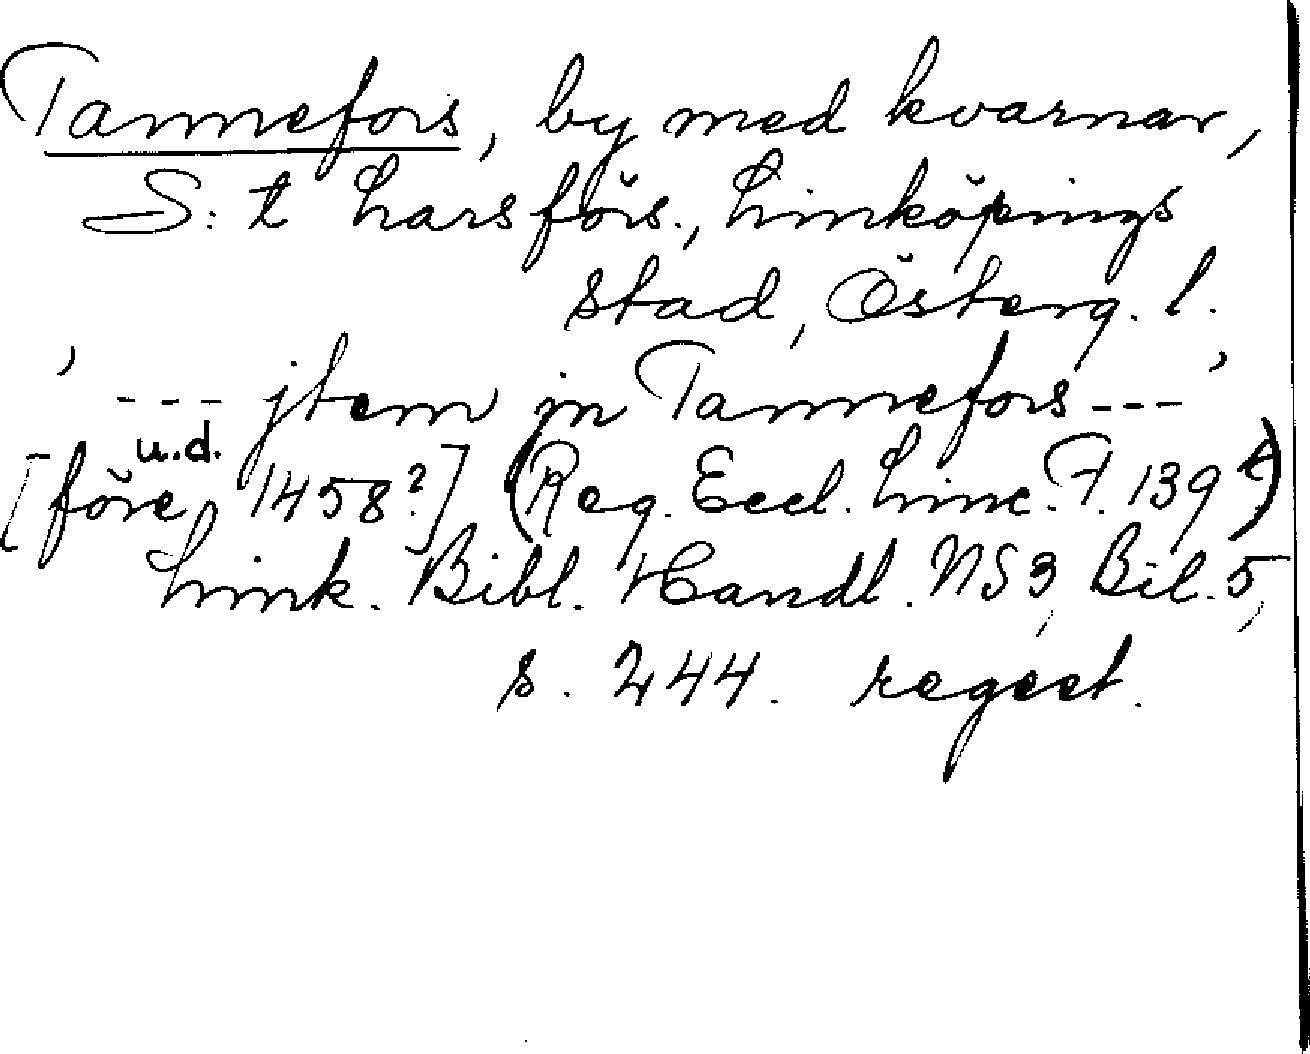 Tannefors, by med kvarnar,
S:t Lars förs., Linköpings
stad, Österg. l.
' --- jtem jn Tannefors --- '
u.d.
[före 1458?] (Reg. Eccl. Linc. F. 139 r)
Link. Bibl. Handl. NS 3, Bil. 5,
s. 244. regest.